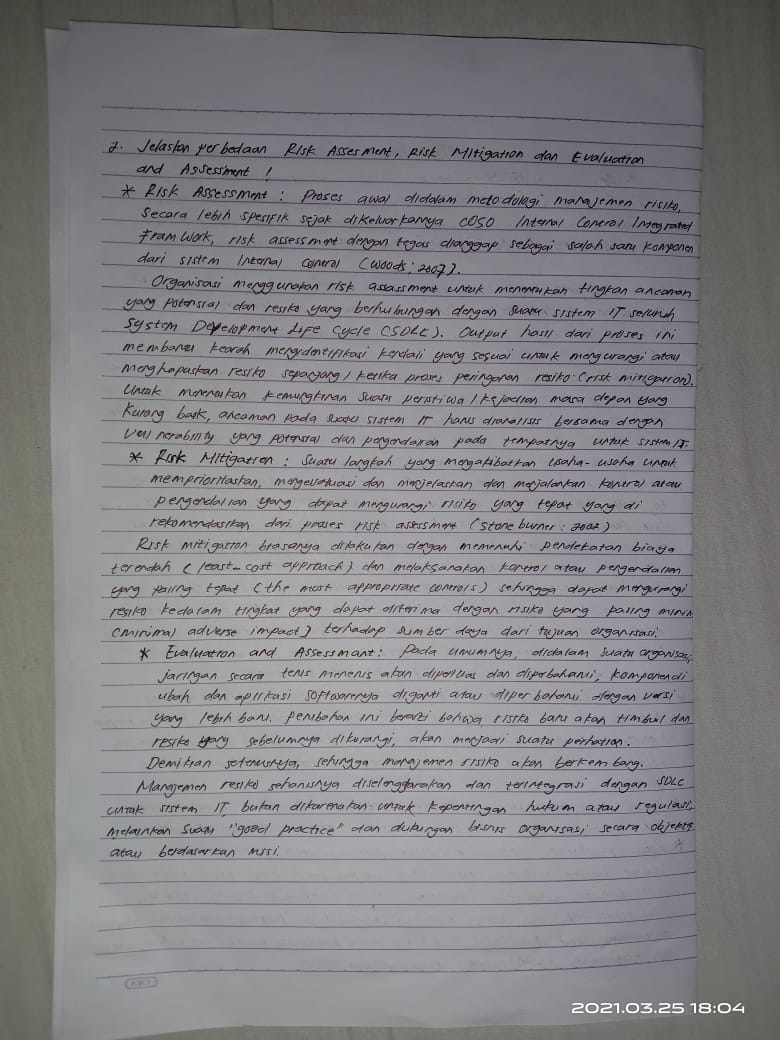 2. Jelaskan perbedaan Risk Assesment, Risk Mitigation dan Evaluation
and Assessment !
* Risk Assessment : Proses awal didalam metodologi manajemen risiko,
Secara lebih spesifik sejak dikeluarkannya COSO Internal Control Integrated
Fram Work, risk assessment dengan tegas dianggap sebagai salah satu komponen
dari sistem Internal Control (Woods; 2007).
Organisasi menggunakan risk assessment untuk menentukan tingkan ancaman
yang potensial dan resiko yang berhubungan dengan suatu sistem IT seluruh
System Development Life Cycle (SDLC). Output hasil dari proses ini
membantu kearah mengidentifikasi kendali yang sesuai untuk mengurangi atau
menghapuskan resiko sepanjang / ketika proses peringanan resiko (risk mitigation).
Untuk menentukan kemungkinan suatu peristiwa / kejadian masa depan yang
kurang baik, ancaman pada suatu sistem IT harus dianalisis bersama dengan
vulnerability yang potensial dan pengendalian pada tempatnya untuk sistem IT.
* Risk Mitigation : Suatu langkah yang mengakibatkan usaha-usaha untuk
memprioritaskan, mengevaluasi dan menjelaskan dan menjalankan kontrol atau
pengendalian yang dapat mengurangi risiko yang tepat yang di
rekomendasikan dari proses risk assessment (Stoneburner : 2002)
Risk mitigation biasanya dilakukan dengan memenuhi pendekatan biaya
terendah (least-cost approach) dan melaksanakan kontrol atau pengendalian
yang paling tepat (the most appropriate controls) sehingga dapat mengurangi
resiko kedalam tingkat yang dapat diterima dengan risiko yang paling minim
(minimal adverse impact) terhadap sumber daya dari tujuan organisasi.
* Evaluation and Assessmant : Pada umumnya, didalam suatu organisasi,
jaringan secara terus menerus akan diperluas dan diperbaharui, komponen di
ubah dan aplikasi softwarenya diganti atau diperbaharui dengan versi
yang lebih baru. Perubahan ini berarti bahwa risiko baru akan timbul dan
resiko yang sebelumnya dikurangi, akan menjadi suatu perhatian.
Demikian seterusnya, sehingga manajemen risiko akan berkembang.
Manajemen resiko seharusnya diselenggarakan dan terintegrasi dengan SDLC
untuk sistem IT, bukan dikarenakan untuk kepentingan hukum atau regulasi,
melainkan suatu "good practice" dan dukungan bisnis organisasi secara objektif
atau berdasarkan misi.
KIKY
2021.03.25 18:04